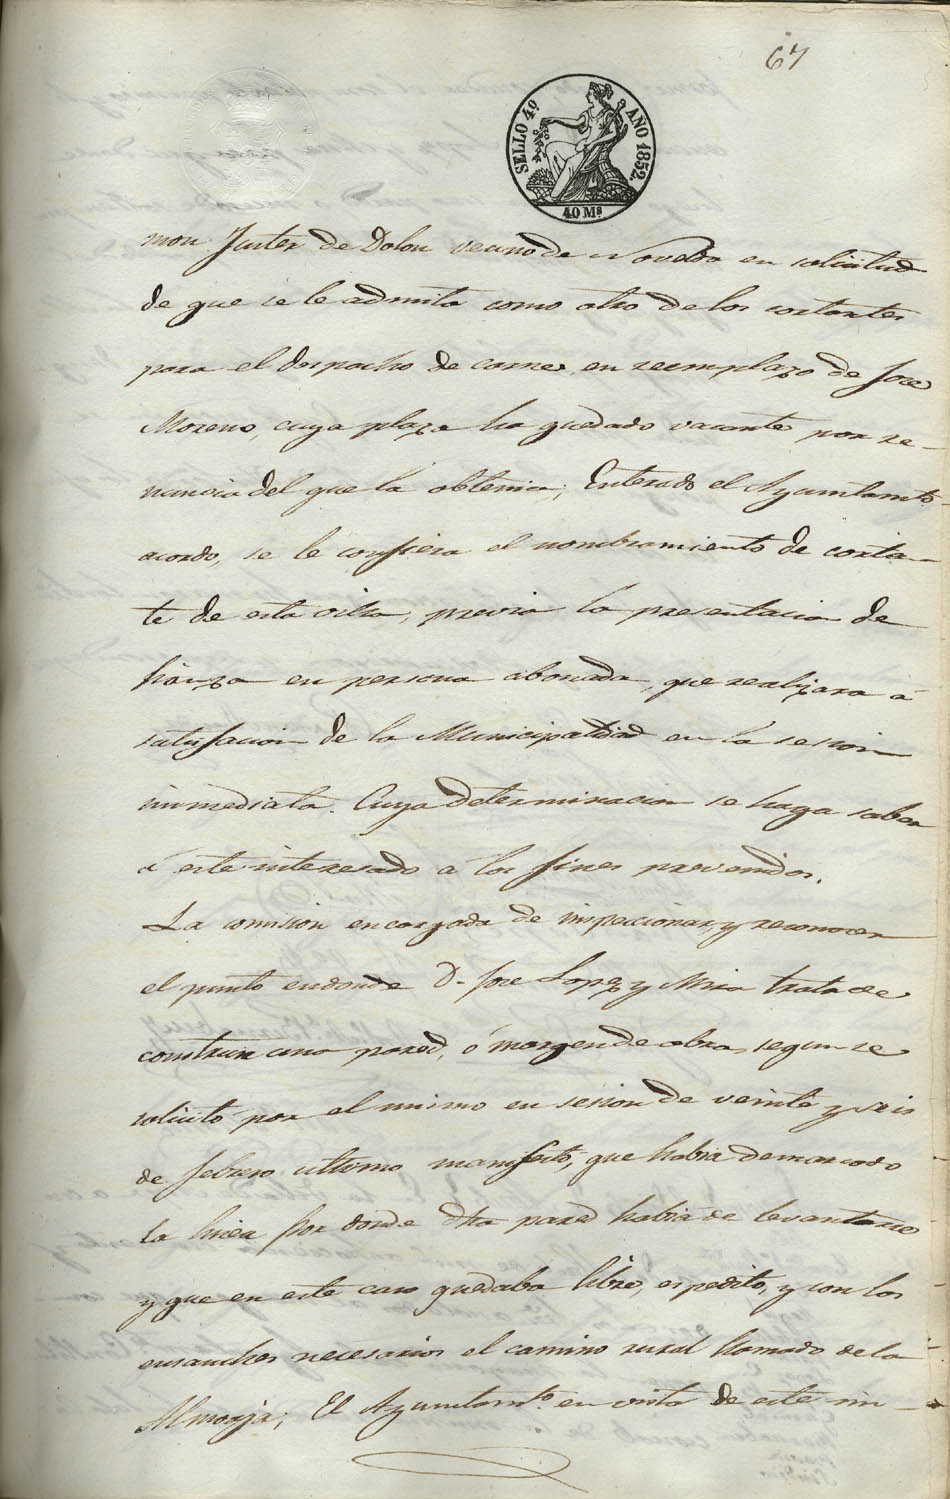 67
SELLO 4º AÑO 1852.
40 Ms
mon Juster de Dolon vecino de Novelda en solicitud
de que se le admita como otro de los cortantes
para el despacho de carnes, en reemplazo de Jose
Moreno, cuya plaza ha quedado vacante por re-
nuncia del que la obtenia; Enterado el Ayuntamto
acordo, se le confiera el nombramiento de cortan-
te de esta villa, previa la presentacion de
fianza en persona abonada, que realizara á
satisfacion de la Municipalidad en la sesion
inmediata. Cuya determinacion se haga saber
á este interesado á los fines prevenidos.
La comision encargada de inspeccionar y reconocer
el punto en donde D. Jose Lopez y Mira trata de
construir una pared, ó margen de obra, segun se
solicitó por el mismo en sesion de veinte y seis
de febrero ultimo manifestó, que habia demarcado
la linea por donde dha pared habia de levantarse
y que en este caso quedaba libre, espedito, y con los
ensanches necesarios el camino rural llamado de la
Almorja; El Ayuntamto. en vista de este in-